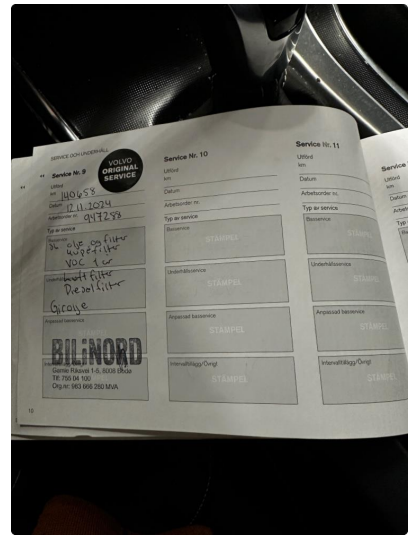 SERVICE OCH UNDERHÅLL
Service Nr. 9
VOLVO
ORIGINAL
SERVICE
Utförd
km 140658
Datum 12.11.2024
Arbetsorder nr. 947258
Typ av service
Basservice
olje og filter
Kupefilter
VOC 1 år
Luftfilter
Dieselfilter
Anpassad basservice
BILiNORD
Gamle Riksvei 1-5, 8008 Bodø
Tlf. 755 04 100
Org.nr: 963 666 280 MVA
Service Nr. 10
Utförd
km
Datum
Arbetsorder nr.
Typ av service
Basservice
STÄMPEL
Underhållsservice
STÄMPEL
Anpassad basservice
STÄMPEL
Intervalltillägg/Övrigt
STÄMPEL
Service Nr. 11
Utförd
km
Datum
Arbetsorder nr.
Typ av service
Basservice
Underhållsservice
Anpassad basservice
Intervalltillägg/Övrigt
Service
Utförd
km
Datum